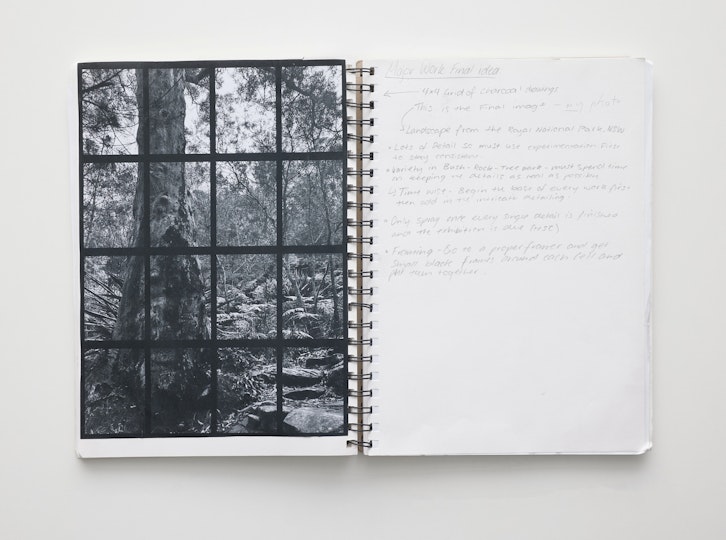 Major Work Final idea
4x4 Grid of charcoal drawings
This is the Final image - my photo
Landscape from the Royal National Park, NSW
• Lots of Detail so must use experimentation first
to stay consistent.
• Variety in Bush - Rock - Tree - must spend time
on keeping the details as real as possible
Time wise - Begin the base of every work first
then add in the intricate detailing.
• Only spray once every single detail is finished
and the exhibition is
• Framing - Go to a proper framer and get
simple black frames around each cell and
put them together.